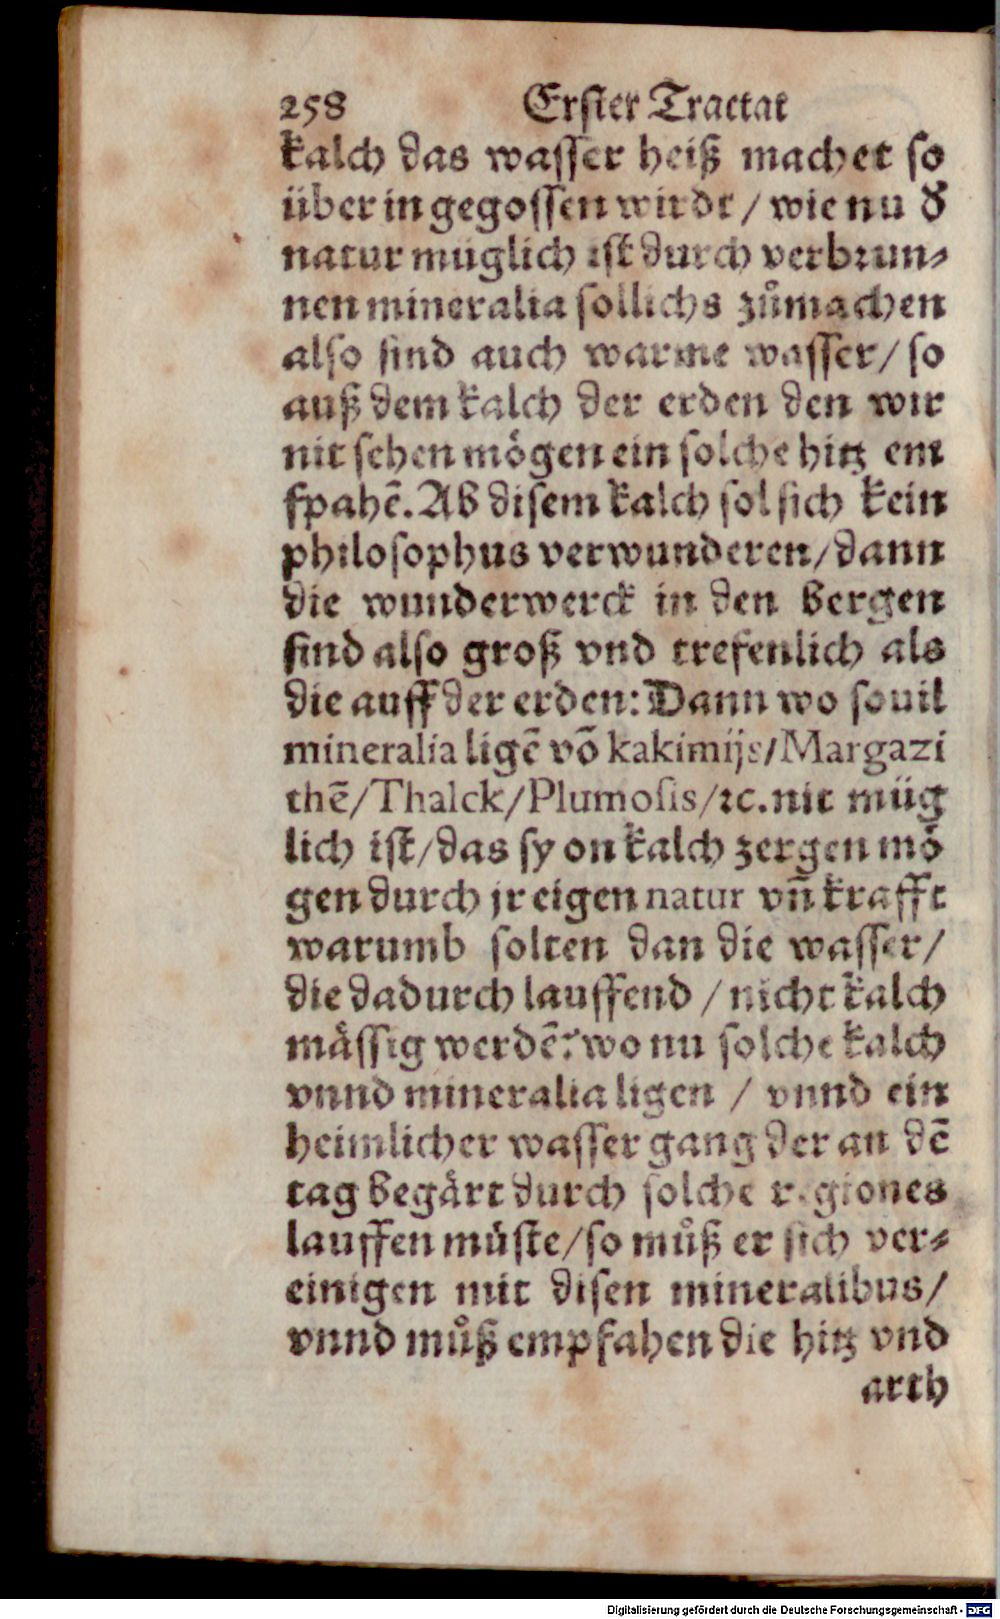 258 Erster Tractat
kalch das wasser heiß machet so
über in gegossen wirdt / wie nu d̕
natur müglich ist durch verbrun⸗
nen mineralia sollichs zůmachen
also sind auch warme wasser / so
auß dem kalch der erden den wir
nit sehen mögen ein solche hitz em
fpahē. Ab disem kalch sol sich kein
philosophus verwunderen / dann
die wunderwerck in den bergen
sind also groß vnd trefenlich als
die auff der erden: Dann wo souil
mineralia ligē vō kakimijs / Margazi
thē / Thalck / Plumosis / ꝛc. nit müg
lich ist / das sy on kalch zergen mö
gen durch jr eigen natur vñ krafft
warumb solten dan die wasser /
die dadurch lauffend / nicht kalch
mässig werdē? wo nu solche kalch
vnnd mineralia ligen / vnnd ein
heimlicher wasser gang der an dē
tag begärt durch solche regiones
lauffen müste / so můß er sich ver⸗
einigen mit disen mineralibus /
vnnd můß empfahen die hitz vnd
arth
Digitalisierung gefördert durch die Deutsche Forschungsgemeinschaft - DFG